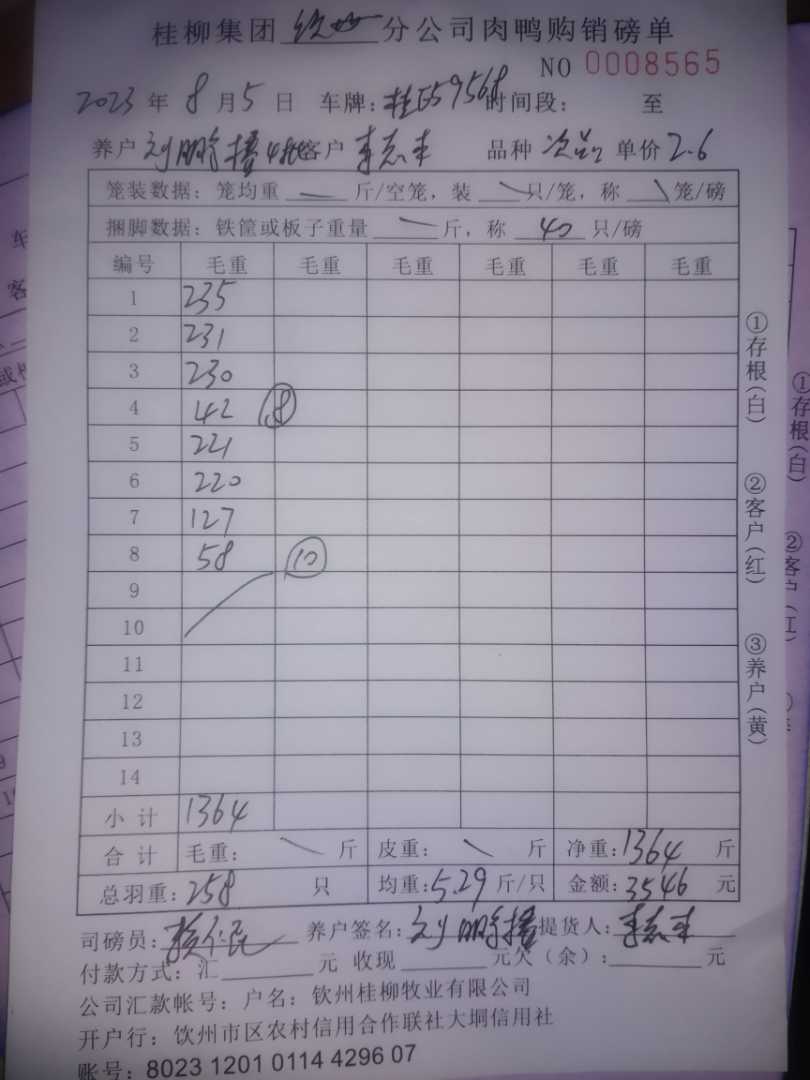 桂柳集团 钦州 分公司肉鸭购销磅单
NO 0008565
2023 年 8 月 5 日 车牌: 时间段: 至
养户 刘鹏 客户 李志丰 品种 次品 单价 2.6
笼装数据: 笼均重 斤/空笼, 装 只/笼, 称 笼/磅
捆脚数据: 铁筐或板子重量 斤, 称 40 只/磅
编号 毛重 毛重 毛重 毛重 毛重 毛重
1 235
2 231
3 230
4 42 ⑧
5 221
6 220
7 127
8 58 ⑩
9
10
11
12
13
14
小计 1364
合计 毛重: 斤 皮重: 斤 净重: 1364 斤
总羽重: 258 只 均重: 5.29 斤/只 金额: 3546 元
司磅员: 养户签名: 刘鹏 提货人: 李志丰
付款方式: 汇 元 收现 元欠(余): 元
公司汇款帐号: 户名: 钦州桂柳牧业有限公司
开户行: 钦州市区农村信用合作联社大垌信用社
账号: 8023 1201 0114 4296 07
①存根(白)
②客户(红)
③养户(黄)
①存根(白)